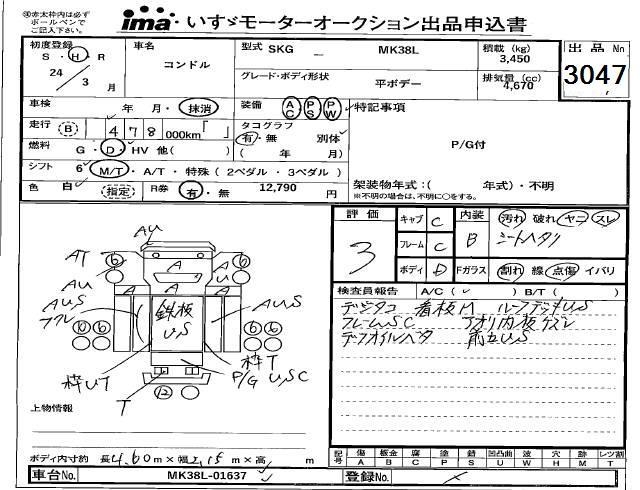 ※赤太枠内は必ず
ボールペンで
ご記入下さい。
ima いすゞモーターオークション出品申込書
初度登録 S・H・R 24 / 3 月
車名 コンドル
型式 SKG － MK38L
積載 (kg) 3,450
グレード・ボディ形状 平ボデー
排気量 (cc) 4,670
出品No 3047
車検 年 月・抹消
装備 AC PS PW
特記事項
走行 (B) 4 7 8 000km「 」
タコグラフ 有・無 別体
( 年 月)
P/G付
燃料 G・D・HV 他( )
シフト 6 M/T・A/T・特殊 (2ペダル・3ペダル)
架装物年式:( 年式)・不明
※不明の場合は、不明に○をする。
色 白 (指定) R券 有・無 12,790 円
評価 3
キャブ C
フレーム C
ボディ D
内装 B 汚れ 破れ ヤニ スレ
シートヘタリ
Fガラス 割れ 線 点傷 イバリ
検査員報告 A/C( ) B/T( )
デジタコ 看板M ルーフデッキU,S
フレームSC アオリ内板ケズレ
デフオイルヘタ 前立U,S
AU
AT 6 6
A A A A U
AU
AUS
フクレ
鉄板
U,S
AUS
10 6 6 6
枠UT
枠T
P/G U,SC
T
12
上物情報
ボディ内寸約 長4.60m×幅2.15m×高 m
記号 傷 A 板金 B 腐 C 塗 P 錆 S 凹凸曲 U 波 W 穴 H 跡 M レツ割 T
車台No. MK38L-01637
登録No.